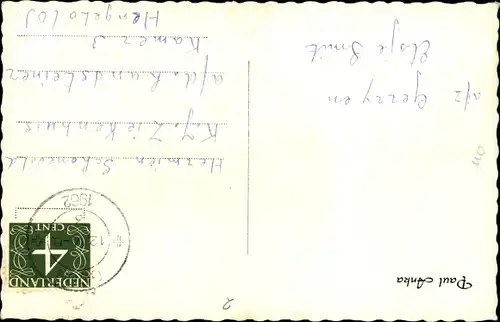 Paul Anka
a/z Gerry en
Elsje Smit
1962
NEDERLAND
4
CENT
Hermien Schoneveld
K.J. Ziekenhuis
afd. Kundsteiner
Kamer 3
Hengelo (O)
2